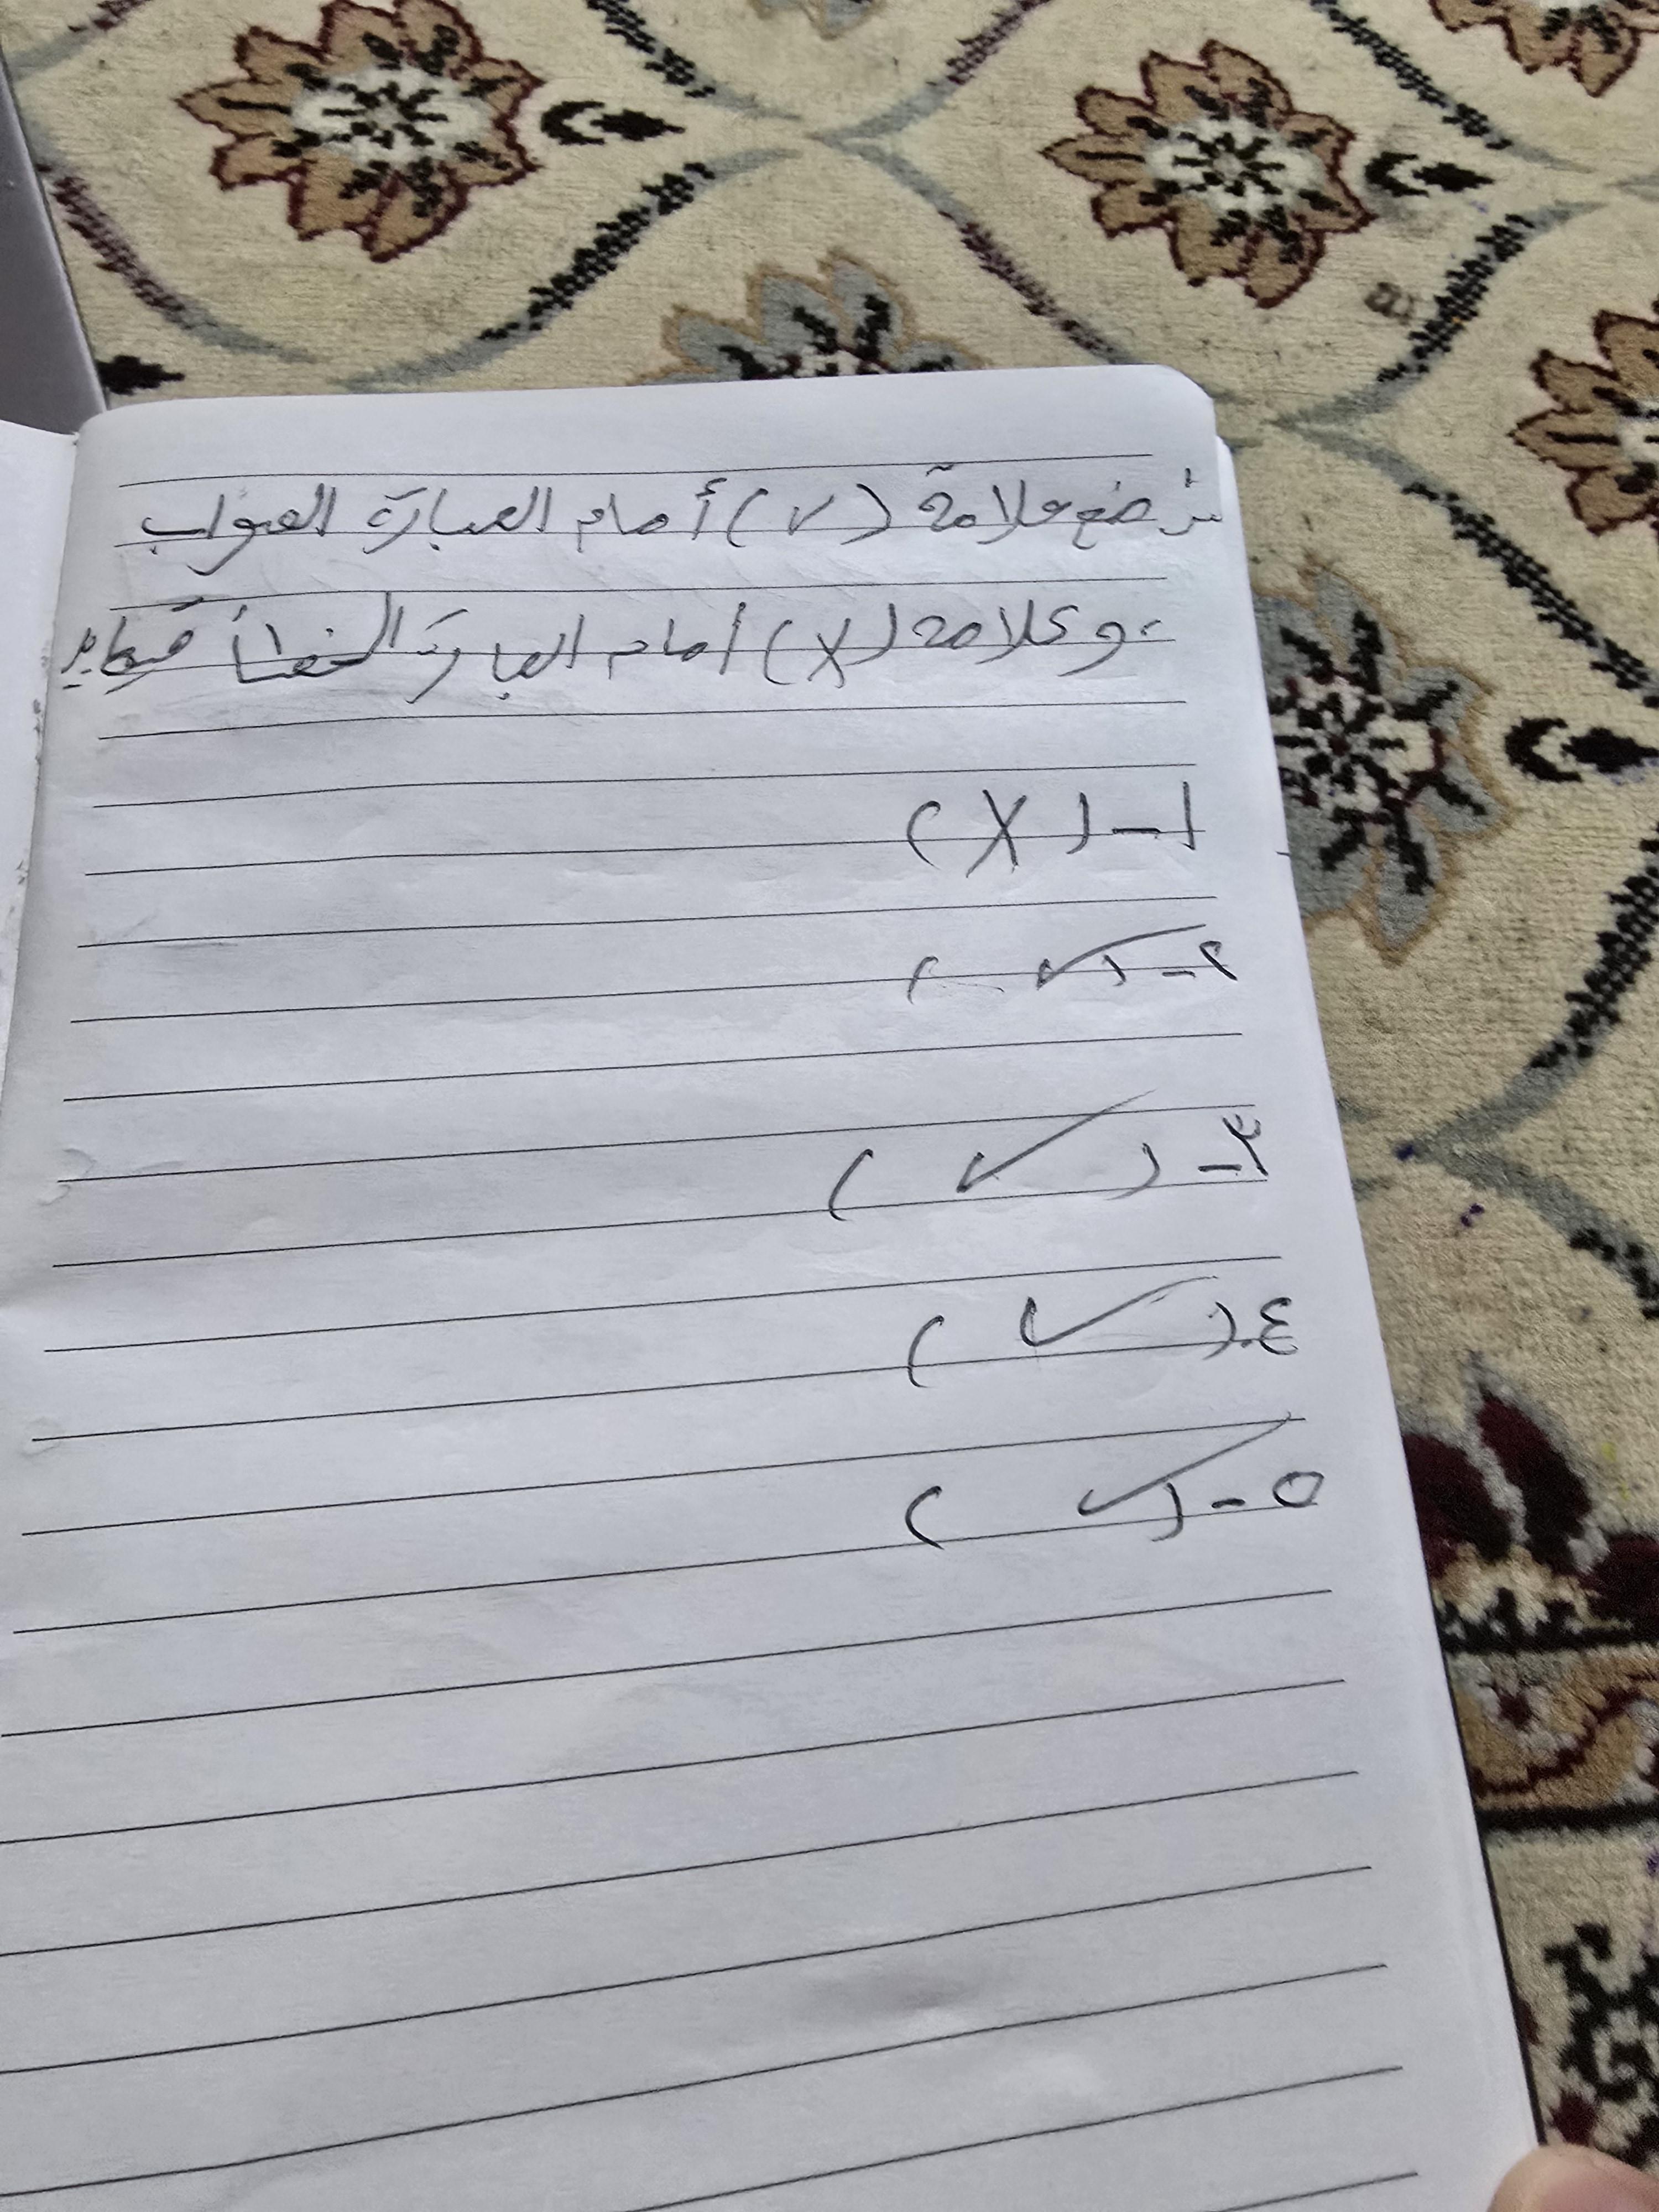 س: ضع علامة (✓) أمام العبارة الصواب
، وعلامة (X) أمام العبارة الخطأ فيما
١- (X)
٢- (✓)
٣- (✓)
٤. (✓)
٥- (✓)